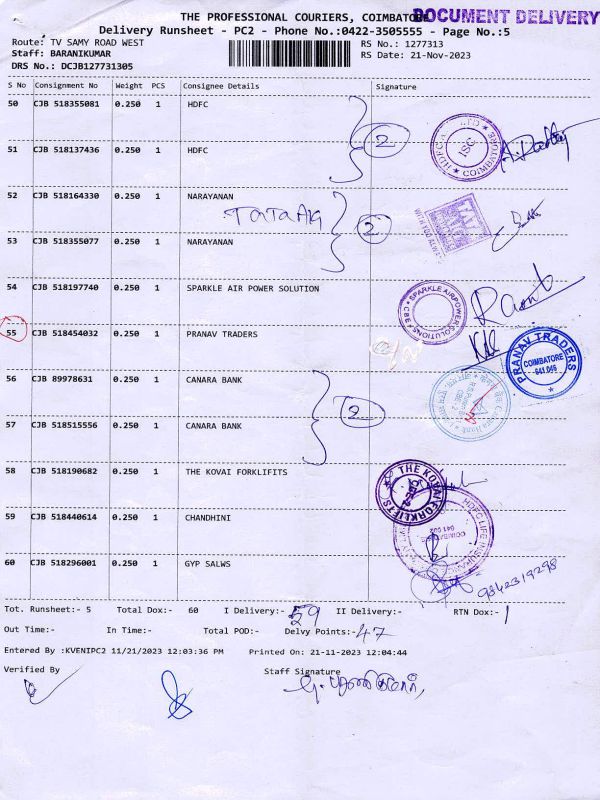 THE PROFESSIONAL COURIERS, COIMBATORE
DOCUMENT DELIVERY
Delivery Runsheet - PC2 - Phone No.:0422-3505555 - Page No.:5
Route: TV SAMY ROAD WEST
RS No.: 1277313
Staff: BARANIKUMAR
RS Date: 21-Nov-2023
DRS No.: DCJB127731305
S No Consignment No Weight PCS Consignee Details Signature
50 CJB 518355081 0.250 1 HDFC
2
HDFC LTD ISC COIMBATORE
51 CJB 518137436 0.250 1 HDFC
52 CJB 518164330 0.250 1 NARAYANAN
TATA AIG
2
TATA AIG
WITH YOU ALWAYS
53 CJB 518355077 0.250 1 NARAYANAN
54 CJB 518197740 0.250 1 SPARKLE AIR POWER SOLUTION
SPARKLE AIRPOWER SOLUTIONS CBE
55 CJB 518454032 0.250 1 PRANAV TRADERS
PRANAV TRADERS
COIMBATORE
641 045
56 CJB 89978631 0.250 1 CANARA BANK
2
57 CJB 518515556 0.250 1 CANARA BANK
58 CJB 518190682 0.250 1 THE KOVAI FORKLIFITS
THE KOVAI FORKLIFTS
59 CJB 518440614 0.250 1 CHANDHINI
HDFC LIFE INSURANCE
60 CJB 518296001 0.250 1 GYP SALWS
9342319298
Tot. Runsheet:- 5 Total Dox:- 60 I Delivery:- 59 II Delivery:- RTN Dox:- 1
Out Time:- In Time:- Total POD:- Delvy Points:- 47
Entered By :KVENIPC2 11/21/2023 12:03:36 PM Printed On: 21-11-2023 12:04:44
Verified By Staff Signature